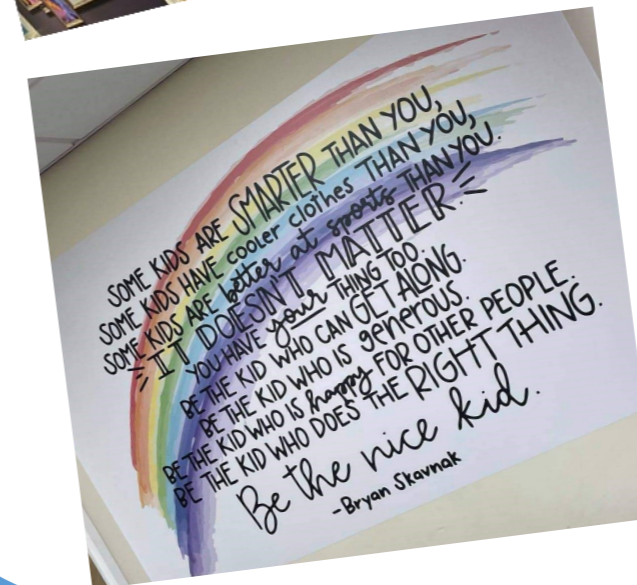 SOME KIDS ARE SMARTER THAN YOU,
SOME KIDS HAVE cooler clothes THAN YOU,
SOME KIDS ARE better at sports THAN YOU.
IT DOESN'T MATTER.
YOU HAVE your THING TOO.
BE THE KID WHO CAN GET ALONG.
BE THE KID WHO IS generous.
BE THE KID WHO IS happy FOR OTHER PEOPLE.
BE THE KID WHO DOES THE RIGHT THING.
Be the nice kid.
-Bryan Skavnak